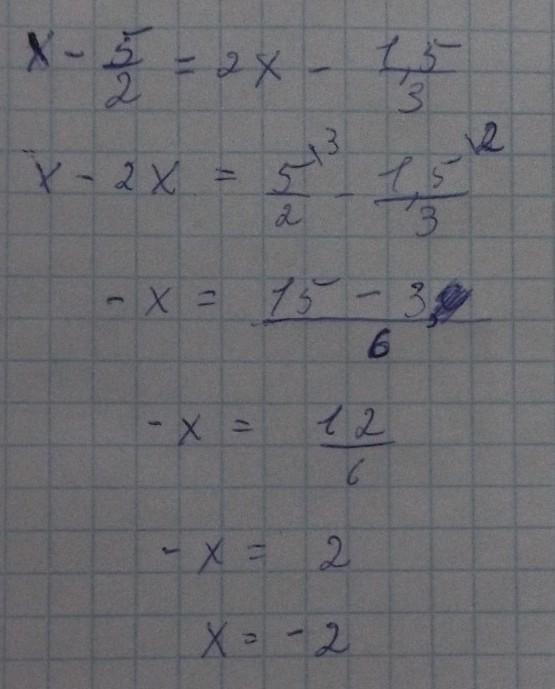 x - 5/2 = 2x - 1,5/3
x - 2x = 5/2 \3 - 1,5/3 \2
- x = 15 - 3/6
- x = 12/6
- x = 2
x = - 2